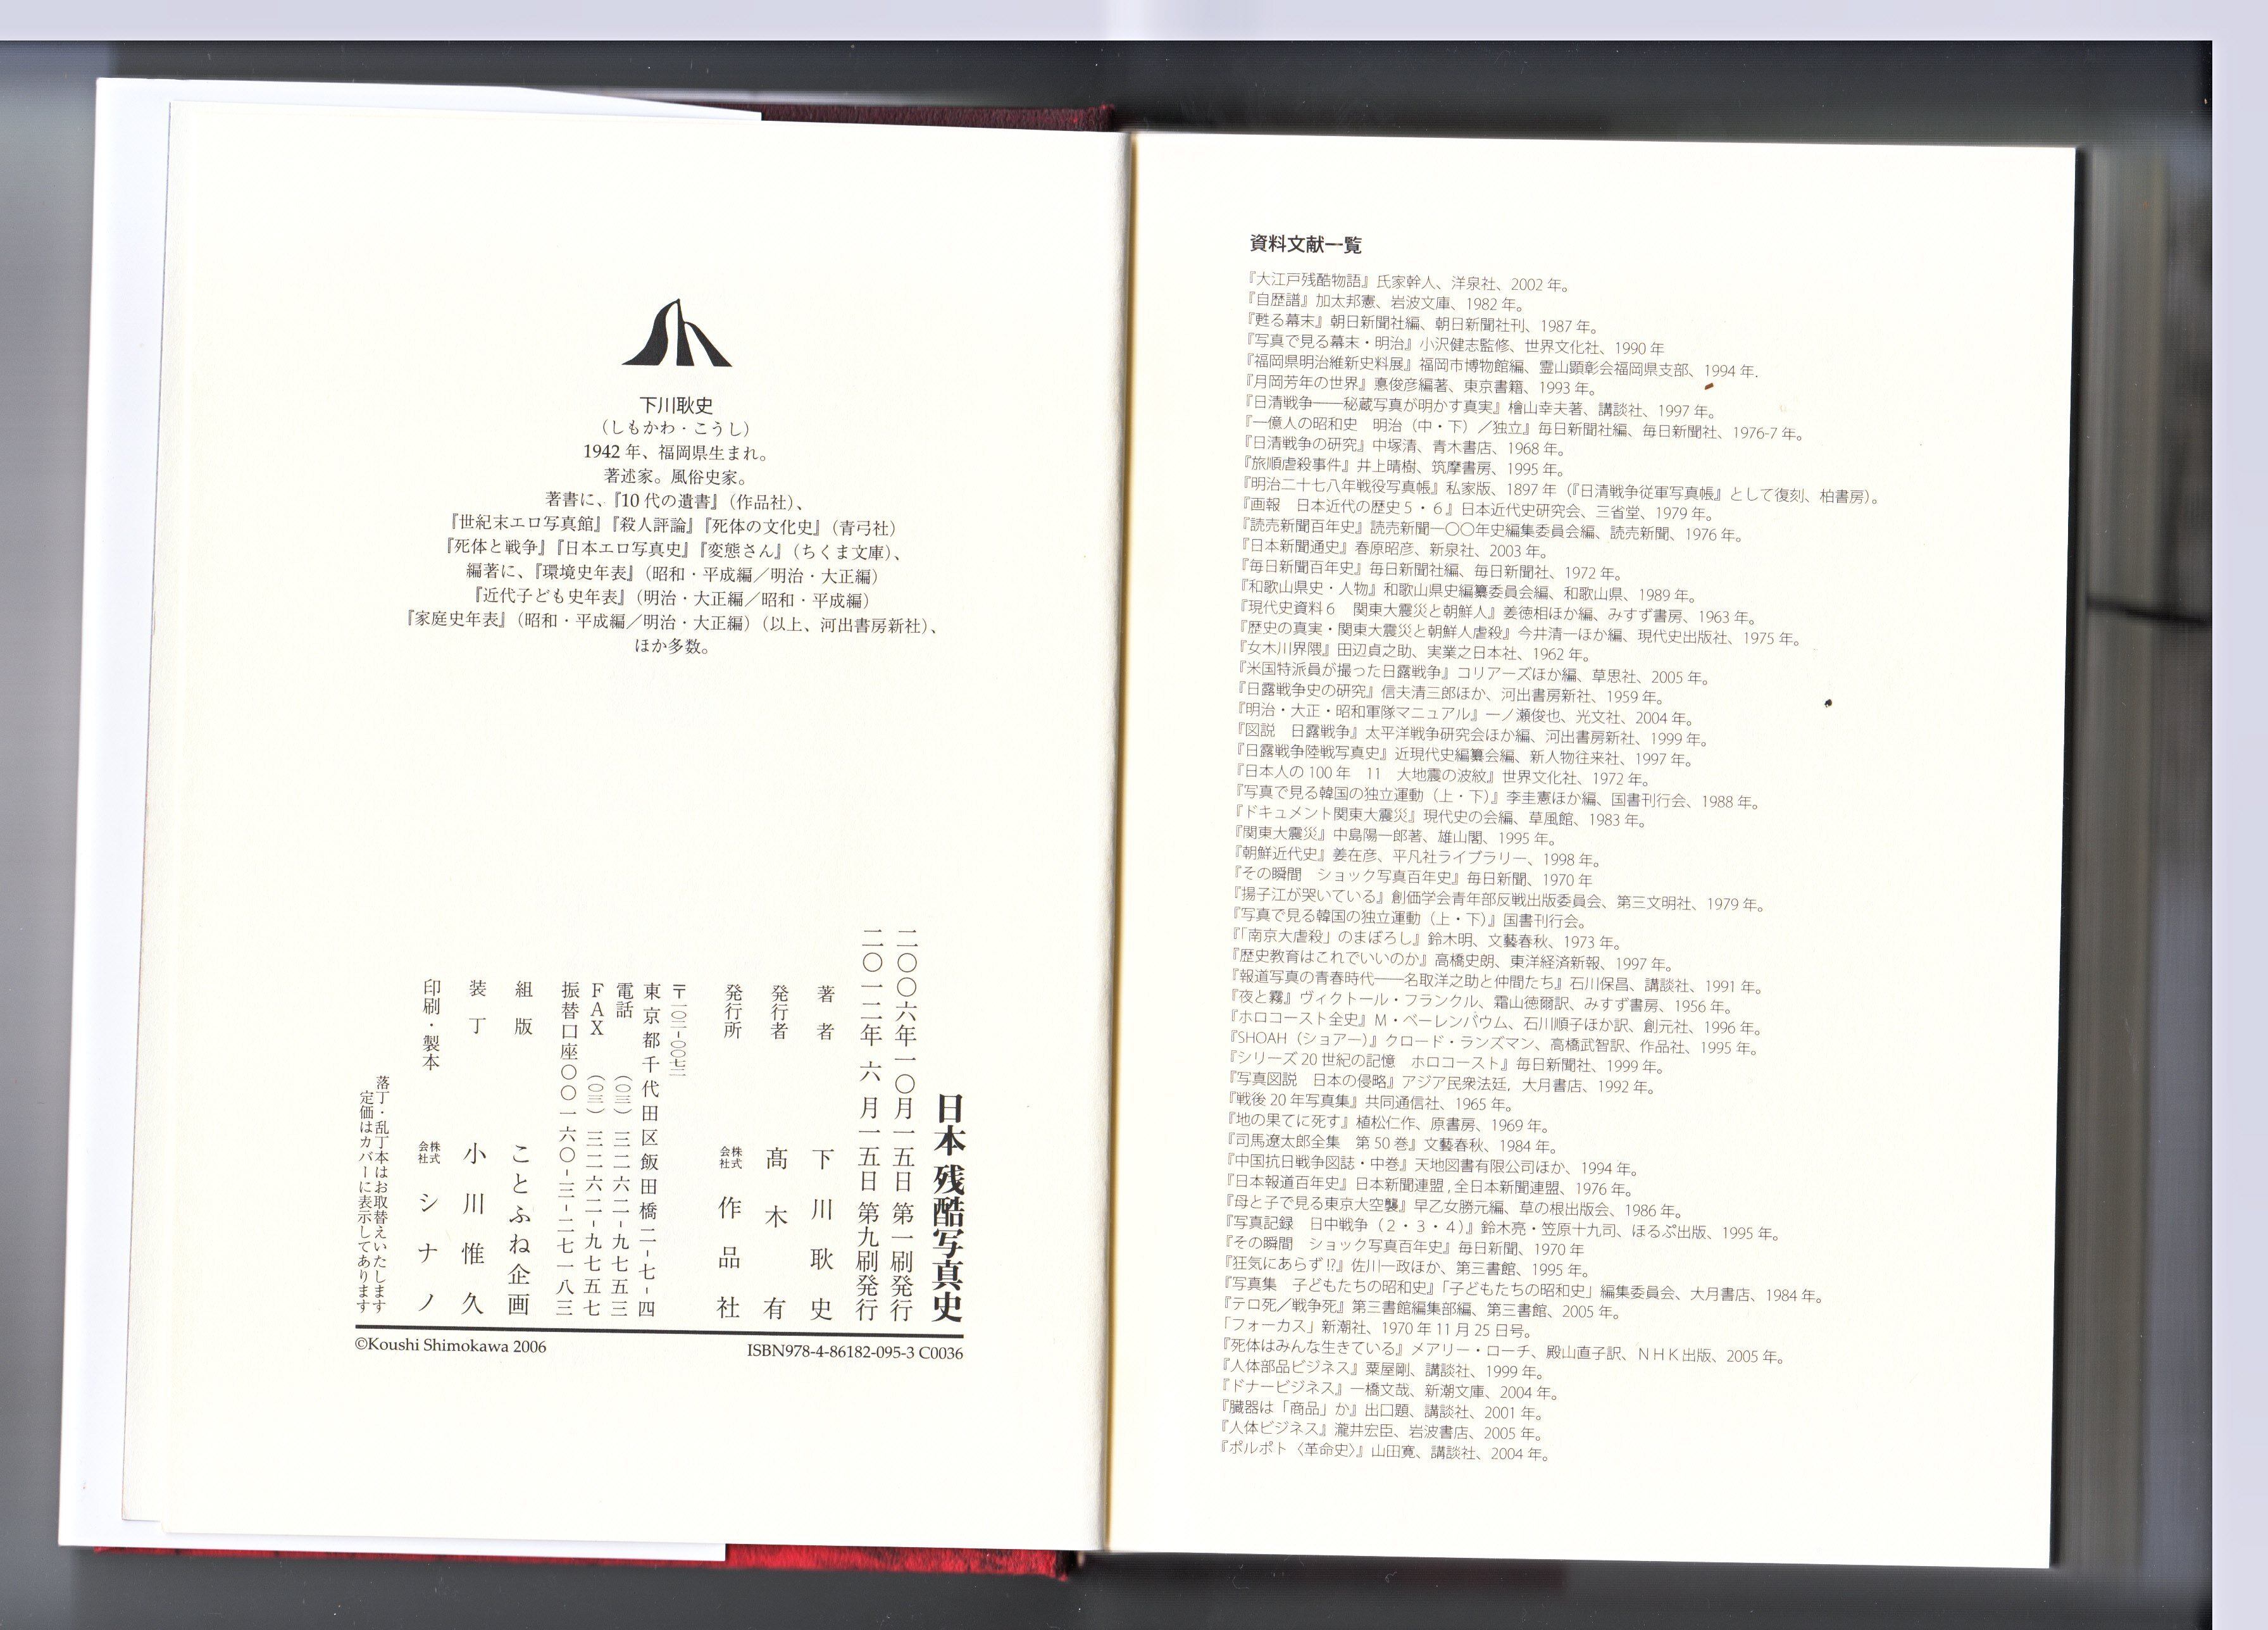 資料文献一覧
『大江戸残酷物語』氏家幹人、洋泉社、2002 年。
『自歴譜』加太邦憲、岩波文庫、1982 年。
『甦る幕末』朝日新聞社編、朝日新聞社刊、1987 年。
『写真で見る幕末・明治』小沢健志監修、世界文化社、1990 年
『福岡県明治維新史料展』福岡市博物館編、霊山顕彰会福岡県支部、1994 年.
『月岡芳年の世界』悳俊彦編著、東京書籍、1993 年。
『日清戦争――秘蔵写真が明かす真実』檜山幸夫著、講談社、1997 年。
『一億人の昭和史　明治（中・下）／独立』毎日新聞社編、毎日新聞社、1976-7 年。
『日清戦争の研究』中塚清、青木書店、1968 年。
『旅順虐殺事件』井上晴樹、筑摩書房、1995 年。
『明治二十七八年戦役写真帳』私家版、1897 年（『日清戦争従軍写真帳』として復刻、柏書房）。
『画報　日本近代の歴史５・６』日本近代史研究会、三省堂、1979 年。
『読売新聞百年史』読売新聞一〇〇年史編集委員会編、読売新聞、1976 年。
『日本新聞通史』春原昭彦、新泉社、2003 年。
『毎日新聞百年史』毎日新聞社編、毎日新聞社、1972 年。
『和歌山県史・人物』和歌山県史編纂委員会編、和歌山県、1989 年。
『現代史資料６　関東大震災と朝鮮人』姜徳相ほか編、みすず書房、1963 年。
『歴史の真実・関東大震災と朝鮮人虐殺』今井清一ほか編、現代史出版社、1975 年。
『女木川界隈』田辺貞之助、実業之日本社、1962 年。
『米国特派員が撮った日露戦争』コリアーズほか編、草思社、2005 年。
『日露戦争史の研究』信夫清三郎ほか、河出書房新社、1959 年。
『明治・大正・昭和軍隊マニュアル』一ノ瀬俊也、光文社、2004 年。
『図説　日露戦争』太平洋戦争研究会ほか編、河出書房新社、1999 年。
『日露戦争陸戦写真史』近現代史編纂会編、新人物往来社、1997 年。
『日本人の 100 年　11　大地震の波紋』世界文化社、1972 年。
『写真で見る韓国の独立運動（上・下）』李圭憲ほか編、国書刊行会、1988 年。
『ドキュメント関東大震災』現代史の会編、草風館、1983 年。
『関東大震災』中島陽一郎著、雄山閣、1995 年。
『朝鮮近代史』姜在彦、平凡社ライブラリー、1998 年。
『その瞬間　ショック写真百年史』毎日新聞、1970 年
『揚子江が哭いている』創価学会青年部反戦出版委員会、第三文明社、1979 年。
『写真で見る韓国の独立運動（上・下）』国書刊行会。
『「南京大虐殺」のまぼろし』鈴木明、文藝春秋、1973 年。
『歴史教育はこれでいいのか』高橋史朗、東洋経済新報、1997 年。
『報道写真の青春時代――名取洋之助と仲間たち』石川保昌、講談社、1991 年。
『夜と霧』ヴィクトール・フランクル、霜山徳爾訳、みすず書房、1956 年。
『ホロコースト全史』Ｍ・ベーレンバウム、石川順子ほか訳、創元社、1996 年。
『SHOAH（ショアー）』クロード・ランズマン、高橋武智訳、作品社、1995 年。
『シリーズ 20 世紀の記憶　ホロコースト』毎日新聞社、1999 年。
『写真図説　日本の侵略』アジア民衆法廷，大月書店、1992 年。
『戦後 20 年写真集』共同通信社、1965 年。
『地の果てに死す』植松仁作、原書房、1969 年。
『司馬遼太郎全集　第 50 巻』文藝春秋、1984 年。
『中国抗日戦争図誌・中巻』天地図書有限公司ほか、1994 年。
『日本報道百年史』日本新聞連盟，全日本新聞連盟、1976 年。
『母と子で見る東京大空襲』早乙女勝元編、草の根出版会、1986 年。
『写真記録　日中戦争（２・３・４）』鈴木亮・笠原十九司、ほるぷ出版、1995 年。
『その瞬間　ショック写真百年史』毎日新聞、1970 年
『狂気にあらず!?』佐川一政ほか、第三書館、1995 年。
『写真集　子どもたちの昭和史』「子どもたちの昭和史」編集委員会、大月書店、1984 年。
『テロ死／戦争死』第三書館編集部編、第三書館、2005 年。
「フォーカス」新潮社、1970 年 11 月 25 日号。
『死体はみんな生きている』メアリー・ローチ、殿山直子訳、ＮＨＫ出版、2005 年。
『人体部品ビジネス』粟屋剛、講談社、1999 年。
『ドナービジネス』一橋文哉、新潮文庫、2004 年。
『臓器は「商品」か』出口顕、講談社、2001 年。
『人体ビジネス』瀧井宏臣、岩波書店、2005 年。
『ポルポト〈革命史〉』山田寛、講談社、2004 年。
下川耿史
（しもかわ・こうし）
1942 年、福岡県生まれ。
著述家。風俗史家。
著書に、『10 代の遺書』（作品社）、
『世紀末エロ写真館』『殺人評論』『死体の文化史』（青弓社）
『死体と戦争』『日本エロ写真史』『変態さん』（ちくま文庫）、
編著に、『環境史年表』（昭和・平成編／明治・大正編）
『近代子ども史年表』（明治・大正編／昭和・平成編）
『家庭史年表』（昭和・平成編／明治・大正編）（以上、河出書房新社）、
ほか多数。
日本 残酷写真史
二〇〇六年一〇月一五日 第一刷発行
二〇一二年 六月一五日 第九刷発行
著者 下川耿史
発行者 髙木有
発行所 株式会社 作品社
〒一〇二-〇〇七二
東京都千代田区飯田橋二-七-四
電話 （〇三）三二六二-九七五三
ＦＡＸ （〇三）三二六二-九七五七
振替口座〇〇一六〇-三-二七一八三
組版 ことふね企画
装丁 小川惟久
印刷・製本 株式会社 シナノ
落丁・乱丁本はお取替えいたします
定価はカバーに表示してあります
©Koushi Shimokawa 2006
ISBN978-4-86182-095-3 C0036